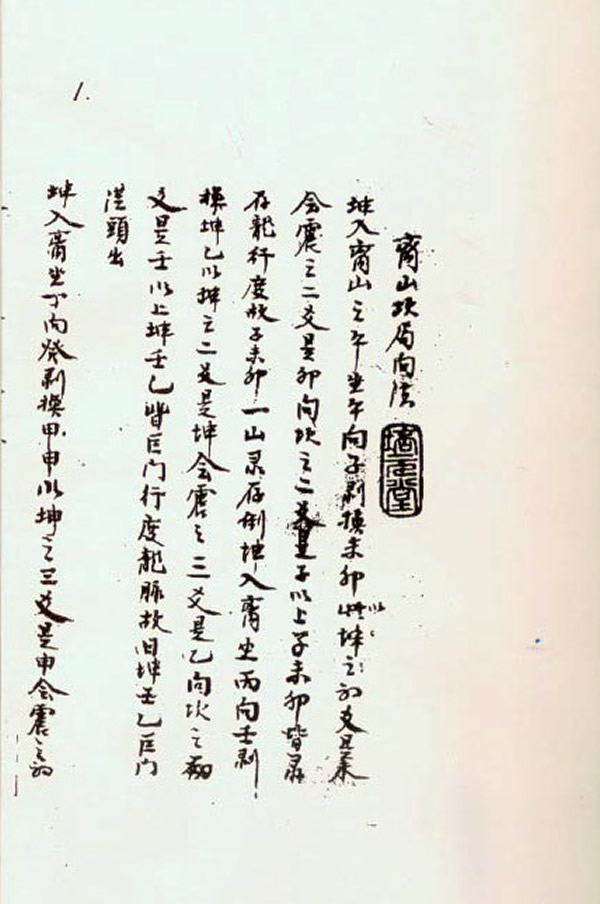 1.
离山坎局向法
坤入离山之午坐午向子剥换未卯 以坤之初爻是未
会震之二爻是卯向坎之二爻是子以上子未卯皆录
存龙行度故子未卯一山录存例 坤入离坐丙向壬剥
换坤乙以坤之二爻是坤会震之三爻是乙向坎之初
爻是壬以上坤壬乙皆巨门行度龙脉故旧坤壬乙巨门
從頭出
坤入离坐丁向癸剥换甲申以坤之三爻是申会震之初